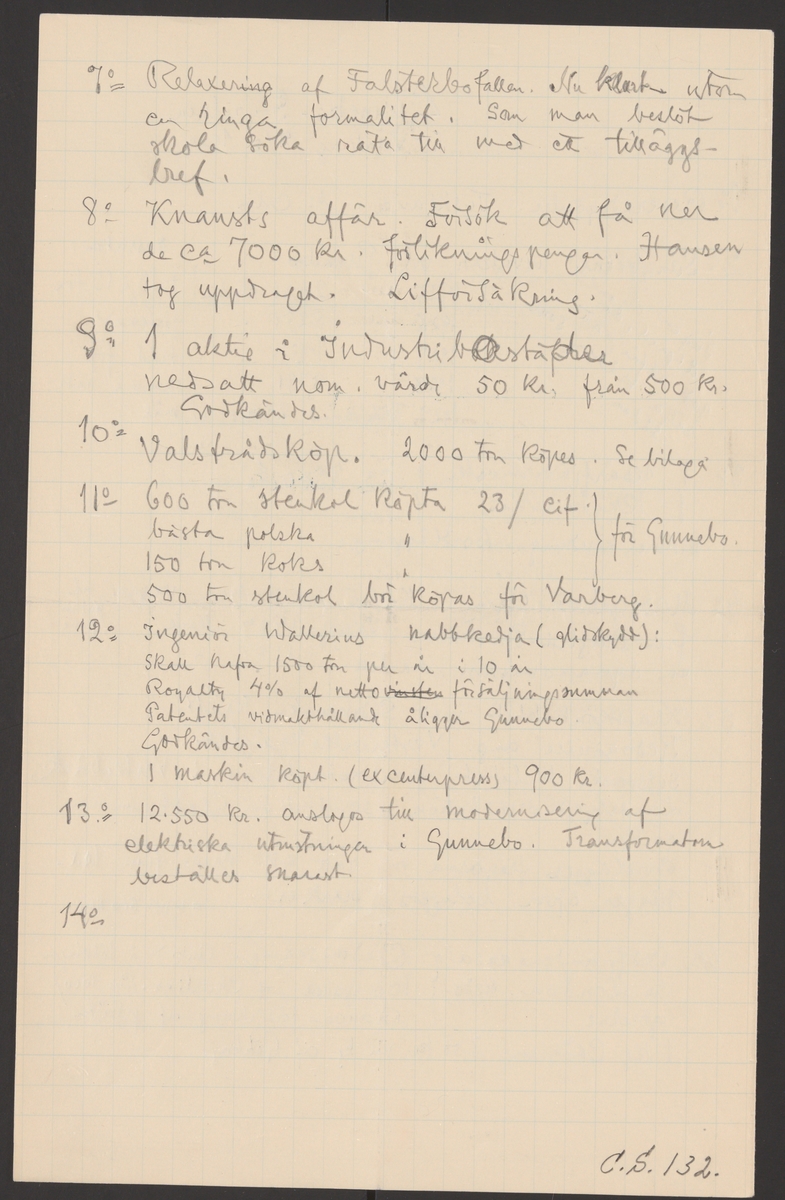 7º Relaxering af Falsterbofallen. Nu klart utom
en ringa formalitet. Som man beslöt
skola söka räta till med ett tilläggs-
bref.
8º Knausts affär. Försök att få ner
de ca 7000 kr. förlikningspengar. Hansen
tog uppdraget. Lifförsäkring.
9º 1 aktie i Industribostäder
nedsatt nom. värde 50 kr, från 500 kr.
Godkändes.
10º Valstrådsköp. 2000 ton köpes. Se bilaga
11º 600 ton stenkol köpta 23/ cif.
bästa polska "
150 ton koks "
för Gunnebo.
500 ton stenkol bör köpas för Varberg.
12º Ingeniör Wallerius nabbkedja (glidskydd):
Skall hafva 1500 ton per år i 10 år
Royalty 4% af nettovinsten försäljningssumman
Patentets vidmakthållande åligger Gunnebo.
Godkändes.
1 maskin köpt. (excenterpress) 900 kr.
13.º 12.550 kr. anslogos till modernisering af
elektriska utrustningen i Gunnebo. Transformatorn
beställes snarast
14º
C.S. 132.